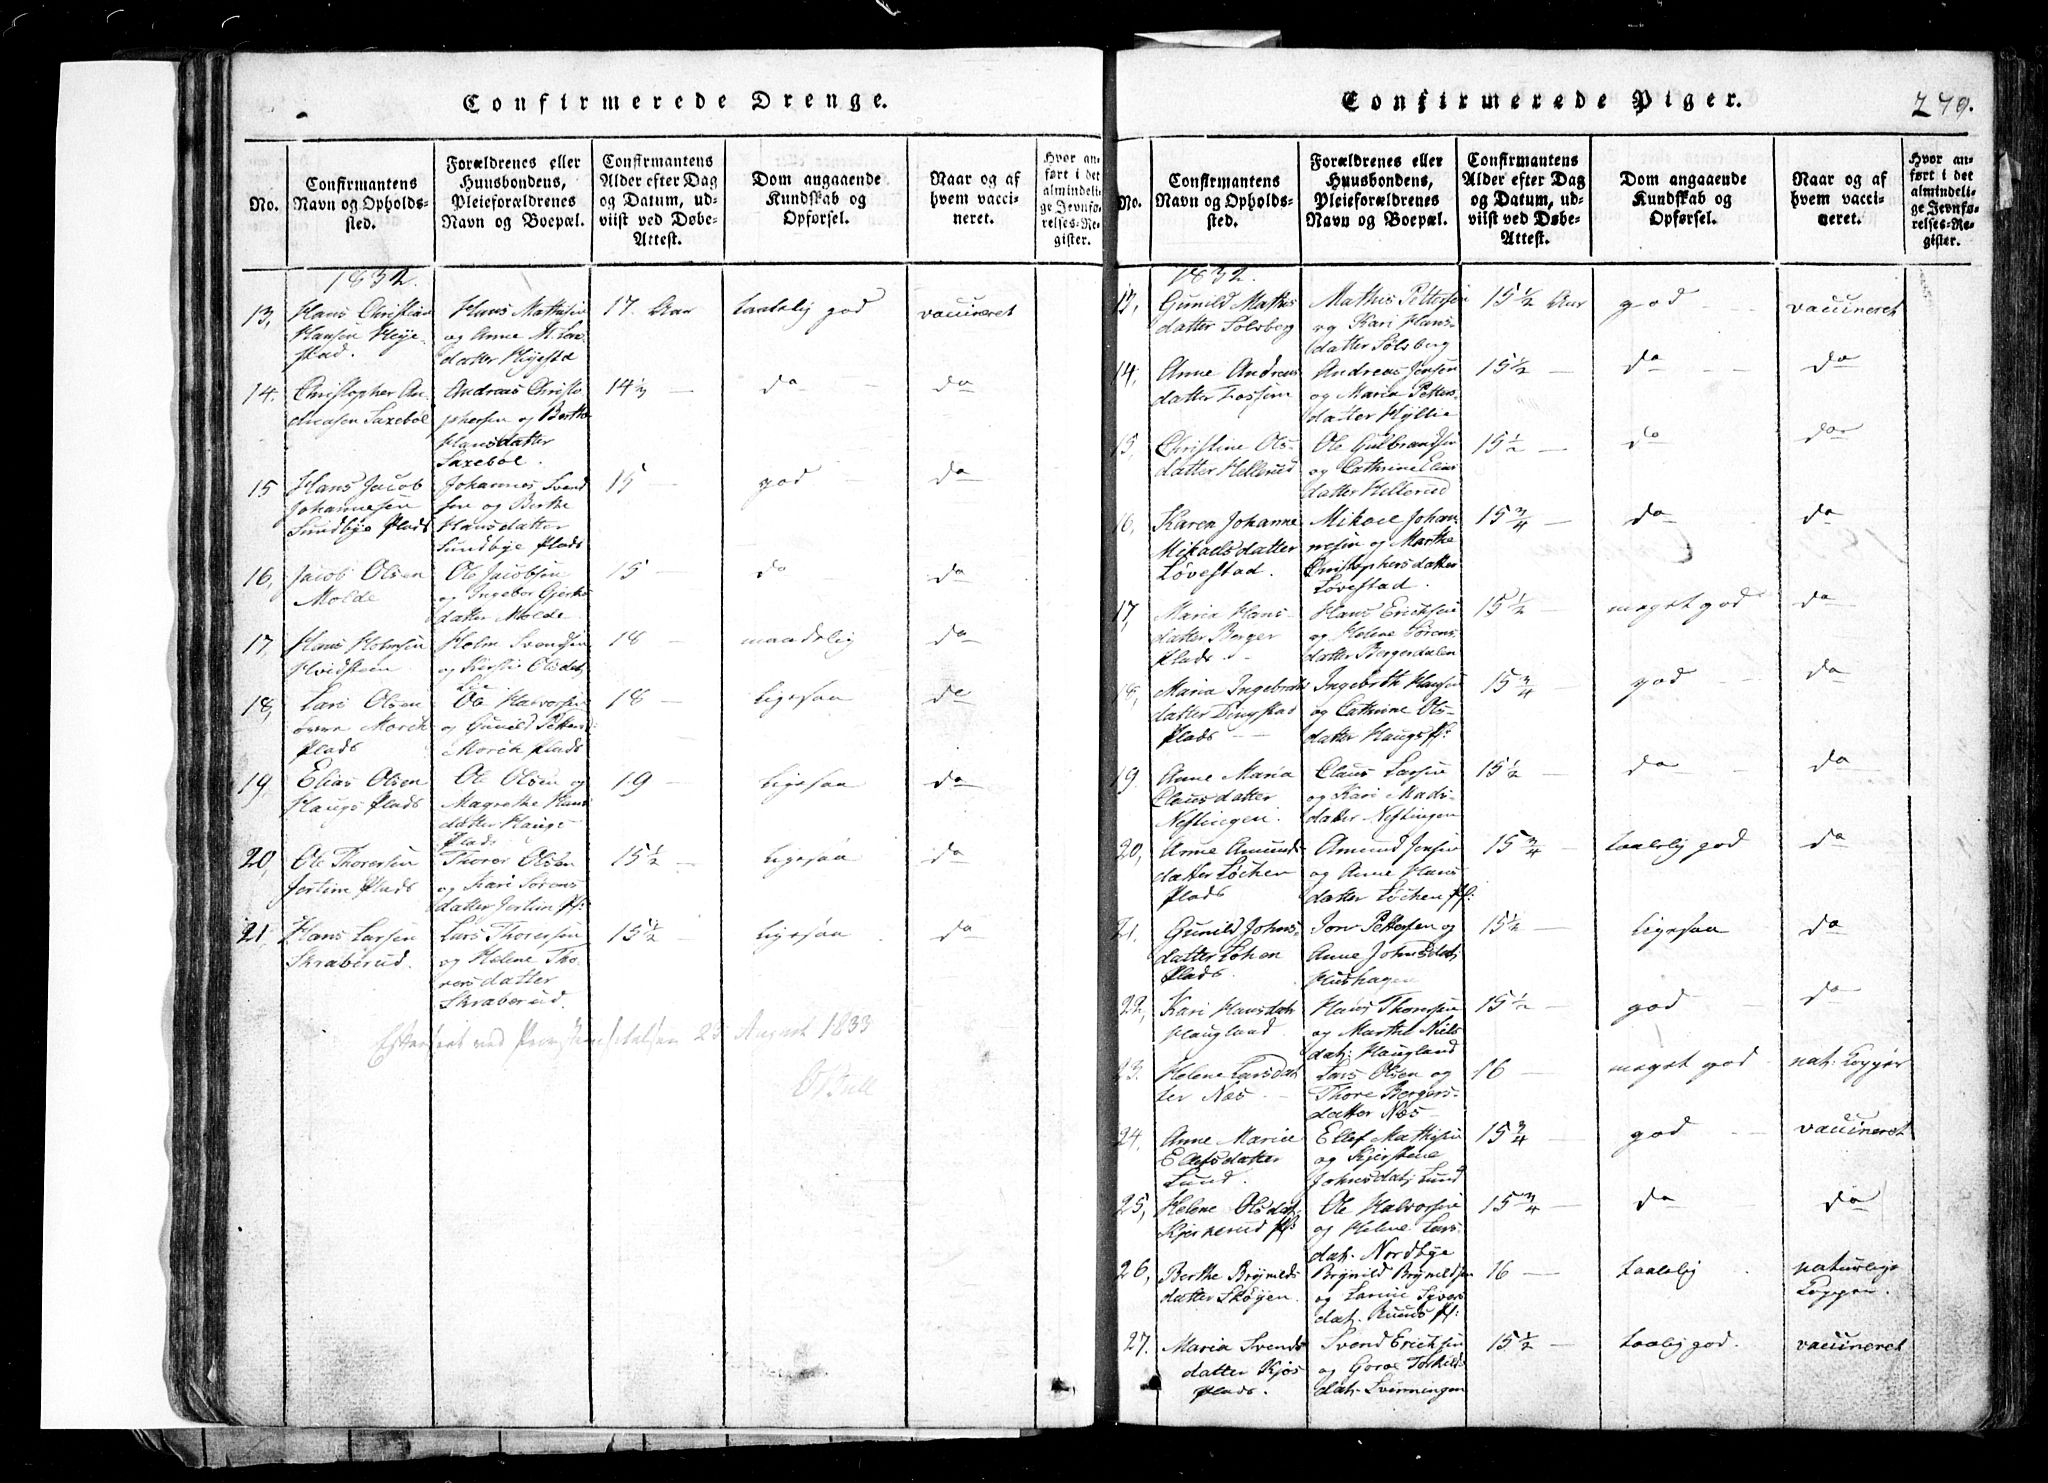 Confirmerede Drenge.
No.
Confirmantens
Navn og Opholds-
sted.
Forældrenes eller
Huusbondens,
Pleieforældrenes
Navn og Boepæl.
Confirmantens
Alder efter Dag
og Datum, ud-
viist ved Døbe-
Attest.
Dom angaaende
Kundskab og
Opførsel.
Naar og af
hvem vacci-
neret.
Hvor an-
ført i det
almindeli-
ge Jevnfø-
relses-Re-
gister.
1832.
13,
Hans Christian
Hansen Heye-
stad.
Hans Mathisen
og Anne M. Lars
datter Heyestad
17. Aar
taalelig god
vaccineret
14.
Christopher An-
dreasen Saxebøl
Andreas Christo-
phersen og Berthe
Hansdatter
Saxebøl.
14½ —
do —
do
15
Hans Jacob
Johannesen
Sundbye Plads
Johannes Svend
sen og Berthe
Hansdatter
Sundbye Plads
15 —
god
do
16,
Jacob Olsen
Molde
Ole Jacobsen
og Ingebor Gjerths
datter Molde
15 —
do —
do
17,
Hans Holmsen
Hvidsteen
Holm Svendsen
og Kirstie Olsdat,
Lie
18 —
maadelig
do
18,
Lars Olsen
øvre Morch
Plads
Ole Halvorsen
og Gunild Petters
Morch Plads
18 —
ligesaa
do
19,
Elias Olsen
Haugs Plads
Ole Olsen og
Magrethe Hans
datter Haugs
Plads
19 —
ligesaa
do
20,
Ole Thoresen
Jortim Plads
Thorer Olsen
og Kari Sørens
datter Jortim Pl:
15½ —
ligesaa
do
21
Hans Larsen
Skraberud.
Lars Thoresen
og Helene Tho-
resdatter
Skraberud.
15½ —
ligesaa
do
Efterseet ved 2 August 1833
O Bull
Confirmerede Piger.
279.
No.
Confirmantens
Navn og Opholds-
sted.
Forældrenes eller
Huusbondens,
Pleieforældrenes
Navn og Boepæl.
Confirmantens
Alder efter Dag
og Datum, ud-
viist ved Døbe-
Attest.
Dom angaaende
Kundskab og
Opførsel.
Naar og af
hvem vacci-
neret.
Hvor an-
ført i det
almindeli-
ge Jevnfø-
relses-Re-
gister.
1832.
13,
Gunild Mathis
datter Solsberg
Mathis Pettersen
og Kari Hans-
datter Sølsberg
15½ Aar
god
vaccineret
14,
Anne Andreas
datter Fossum
Andreas Jensen
og Maria Petters-
datter Hyllie
15½ —
do
do
15,
Christine Ols-
datter Hellerud
Ole Gulbrandsen
og Cathrine Elias
datter Hellerud
15½ —
do
do
16,
Karen Johanne
Mikaelsdatter
Løvestad.
Mikael Johan-
nesen og Marthe
Christophersdatter
Løvestad.
15¾ —
do
do
17,
Maria Hans-
datter Berger
Plads.
Hans Ericksen
og Helene Sørens-
datter Bergerdalen
15½ —
meget god
do
18,
Maria Ingebrets
datter Dingstad
Plads
Ingebreth Hansen
og Cathrine Ols-
datter Haugs Pl:
15¾ —
god
do
19,
Anne Maria
Clausdatter
Neslingen.
Claus Larsen
og Kari Mads-
datter Neslingen
15½ —
do
do
20,
Anne Amunds
datter Løchen
Plads
Amund Jensen
og Anne Hans
datter Løchen Pl:
15¾ —
taalelig god
do
21,
Gunild Johns-
datter Lohen
Plads.
Jon Pettersen og
Anne Johnsdat,
Hushagen
15½ —
ligesaa
do
22,
Kari Hansdat,
Haugland
Hans Thoresen
og Marthe Niels
dat, Haugland
15½ —
god
do
23.
Helene Larsdat
ter Næs
Lars Olsen og
Thore Bergers-
datter Næs
16 —
meget god
nat. Kopper
24,
Anne Marie
Ellefsdatter
Lund.
Ellef Mathisen
og Kjerstine
Johnsdat, Lund
15¾ —
god
vaccineret
25,
Helene Olsdat,
Kjernerud Pl:
Ole Halvorsen
og Helene Lars-
dat. Nordbye
15¾ —
do
do
26,
Berthe Brynilds
datter Skøyen.
Brynild Brynildsen
og Karine Syvers
dat. Ruuds Pl:
16 —
taalelig
naturlige
Kopper.
27.
Maria Svends
datter Kjøs
Plads.
Svend Ericksen
og Goroe Torkilds
dat. Svinningen
15½ —
taalelig god.
vaccineret